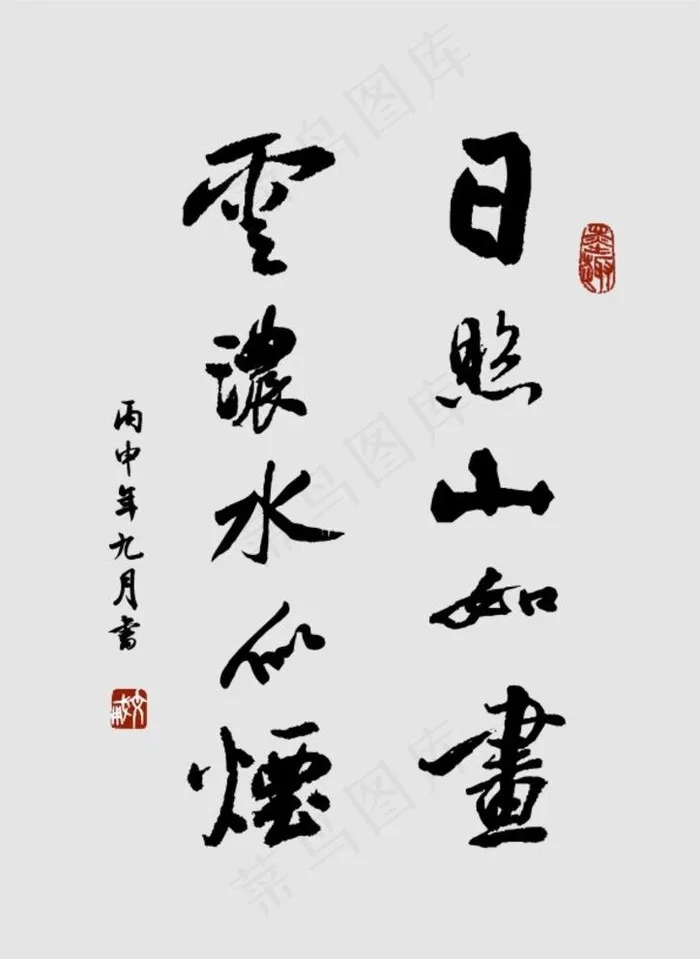 日照山如畫
雲濃水似煙
丙申年九月書
墨趣
菜鸟图库
菜鸟图库
菜鸟图库